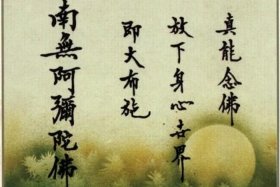 真能念佛
放下身心世界
即大布施
南無阿彌陀佛